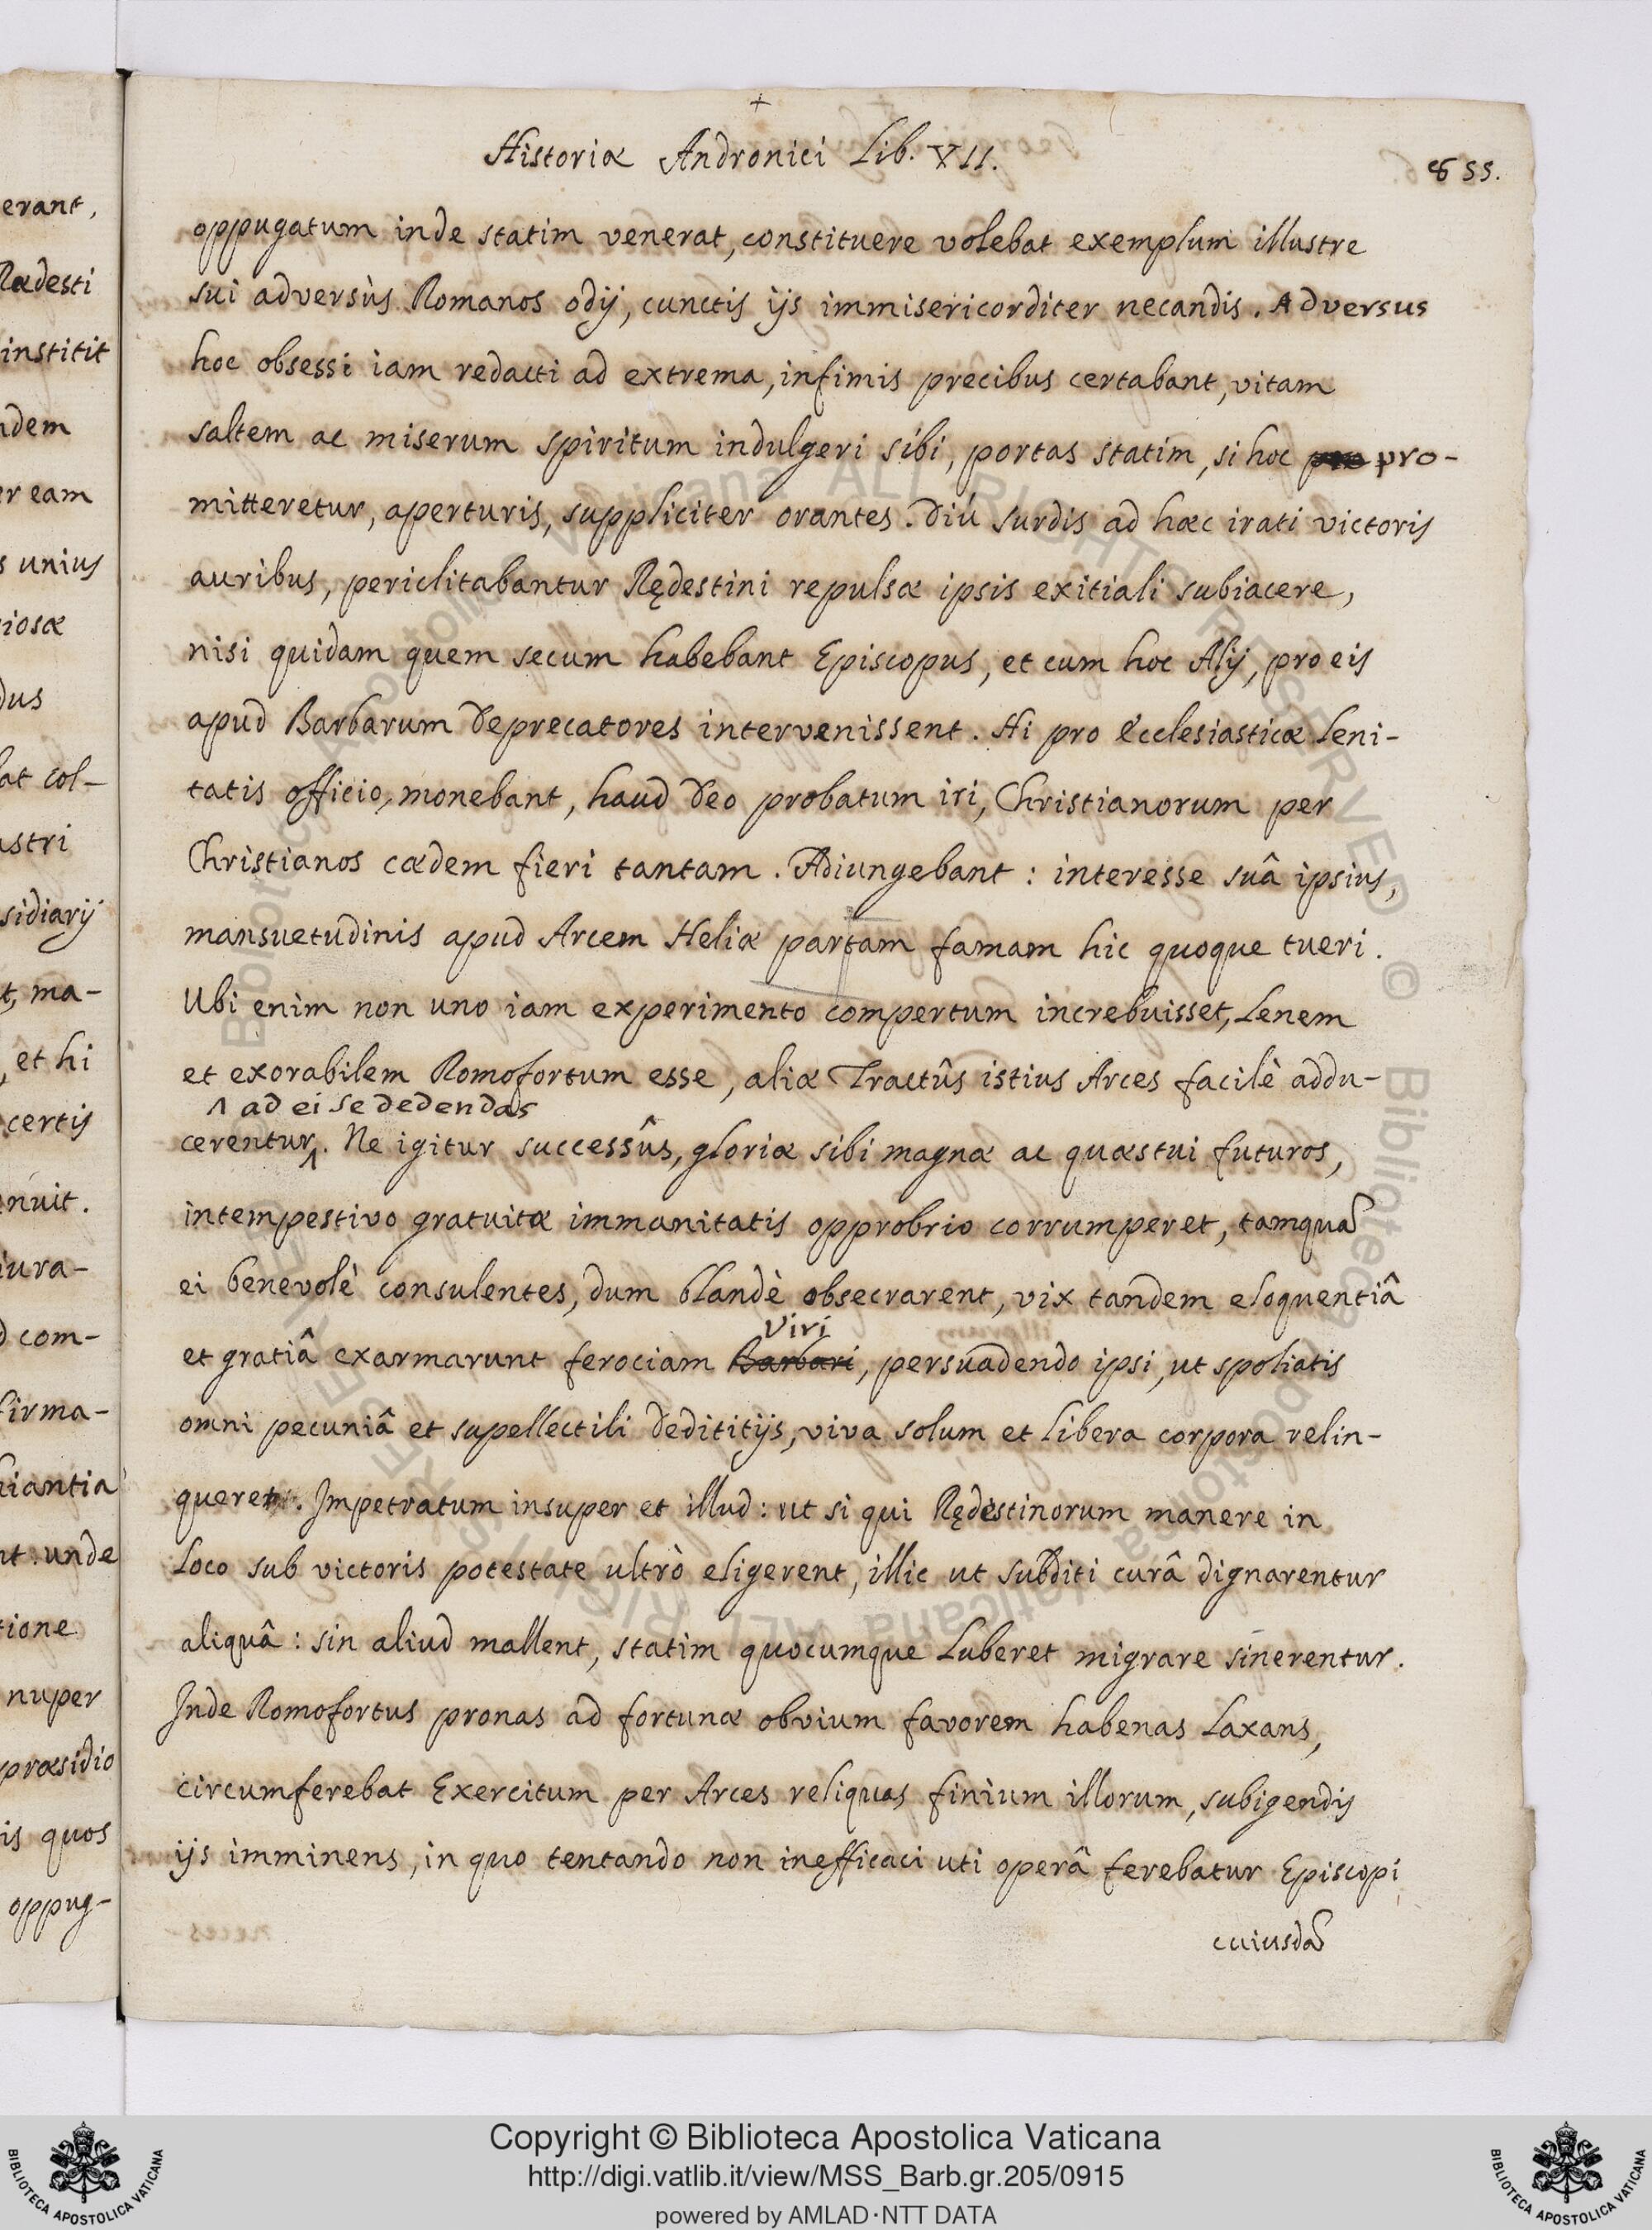 Historiæ Andronici Lib. VII.
855.
oppugatum inde statim venerat, constituere volebat exemplum illustre
sui adversùs Romanos odij, cunctis ijs immisericorditer necandis. Adversus
hoc obsessi iam redacti ad extrema, infimis precibus certabant, vitam
saltem ac miserum spiritum indulgeri sibi, portas statim, si hoc pro pro-
mitteretur, aperturis, suppliciter orantes. Diù surdis ad hæc irati victoris
auribus, periclitabantur Rędestini repulsæ ipsis exitiali subiacere,
nisi quidam quem secum habebant Episcopus, et cum hoc Alij, pro eis
apud Barbarum deprecatores intervenissent. Hi pro Ecclesiasticæ Leni-
tatis officio, monebant, haud Deo probatum iri, Christianorum per
Christianos cædem fieri tantam. Adiungebant: interesse suâ ipsius,
mansuetudinis apud Arcem Heliæ partam famam hic quoque tueri.
Ubi enim non uno iam experimento compertum increbuisset, Lenem
et exorabilem Romofortum esse, aliæ Tractûs istius Arces facilè addu-
^ ad ei se dedendas
cerentur^. Ne igitur successûs, gloriæ sibi magnæ ac quæstui futuros,
intempestivo gratuitæ immanitatis opprobrio corrumperet, tamquã
ei benevolè consulentes, dum blandè obsecrarent, vix tandem eloquentiâ
Viri
et gratiâ exarmarunt ferociam Barbari, persuadendo ipsi, ut spoliatis
omni pecuniâ et supellectili dedititijs, viva solum et libera corpora relin-
queret. Impetratum insuper et illud: ut si qui Rędestinorum manere in
Loco sub victoris potestate ultrò eligerent, illic ut subditi curâ dignarentur
aliquâ: sin aliud mallent, statim quocumque Luberet migrare sinerentur.
Inde Romofortus pronas ad fortunæ obvium favorem habenas Laxans,
circumferebat Exercitum per Arces reliquas finium illorum, subigendis
ijs imminens, in quo tentando non inefficaci uti operâ ferebatur Episcopi
cuiusdã
erant,
Rædesti
institit
ndem
er eam
s unius
iosæ
dus
at col-
astri
sidiarij
t, ma-
, et hi
certis
nuit.
iura-
d com-
firma-
hiantia
nt: unde
tione
nuper
præsidio
is quos
oppug-
Copyright © Biblioteca Apostolica Vaticana
http://digi.vatlib.it/view/MSS_Barb.gr.205/0915
powered by AMLAD·NTT DATA
BIBLIOTECA APOSTOLICA VATICANA
BIBLIOTECA APOSTOLICA VATICANA